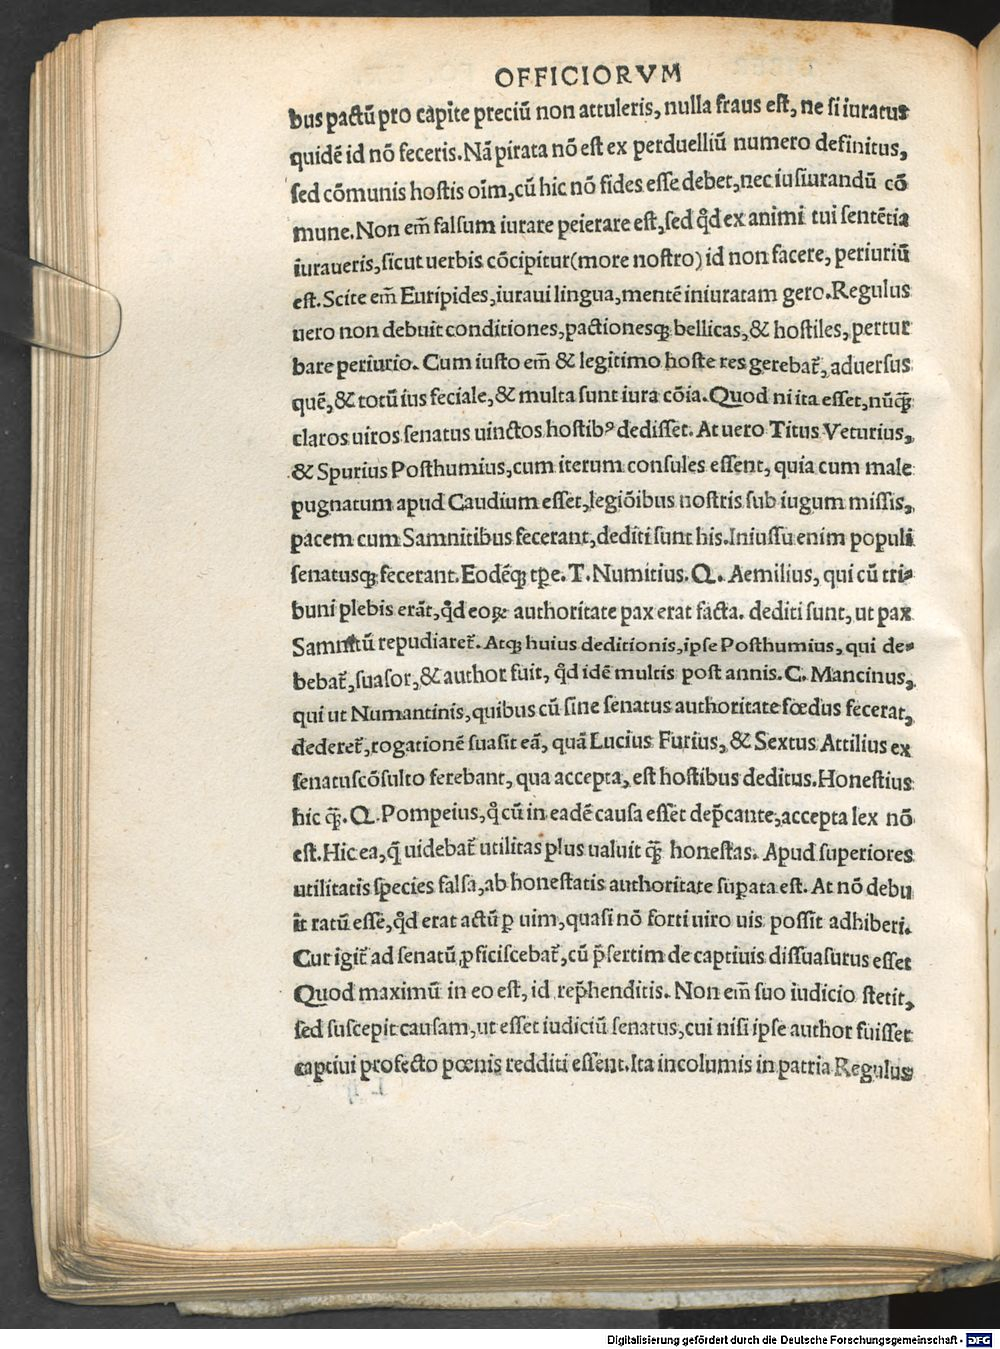 OFFICIORVM
bus pactū pro capite preciū non attuleris, nulla fraus est, ne si iuratus
quidē id nō feceris. Nā pirata nō est ex perduelliū numero definitus,
sed cōmunis hostis oīm, cū hic nō fides esse debet, nec iusiurandū cō
mune. Non em̄ falsum iurare peierare est, sed qd̄ ex animi tui sentētia
iuraueris, sicut uerbis cōcipitur (more nostro) id non facere, periuriū
est. Scite em̄ Euripides, iuraui lingua, mentē iniuratam gero. Regulus
uero non debuit conditiones, pactionesqꝫ bellicas, & hostiles, pertur
bare periurio. Cum iusto em̄ & legitimo hoste res gerebat̄, aduersus
quē, & totū ius feciale, & multa sunt iura cōia. Quod ni ita esset, nūqꝫ̄
claros uiros senatus uinctos hostibꝰ dedisset. At uero Titus Veturius,
& Spurius Posthumius, cum iterum consules essent, quia cum male
pugnatum apud Caudium esset, legiōibus nostris sub iugum missis,
pacem cum Samnitibus fecerant, dediti sunt his. Iniussu enim populi
senatusqꝫ fecerant. Eodēqꝫ tꝑe. T. Numitius. Q. Aemilius, qui cū tri-
buni plebis erāt, qd̄ eoꝝ authoritate pax erat facta. dediti sunt, ut pax
Samnitū repudiaret̄. Atqꝫ huius deditionis, ipse Posthumius, qui de-
bebat̄, suasor, & author fuit, qd̄ idē multis post annis. C. Mancinus,
qui ut Numantinis, quibus cū sine senatus authoritate fœdus fecerat,
dederet̄, rogationē suasit eā, quā Lucius Furius, & Sextus Attilius ex
senatuscōsulto ferebant, qua accepta, est hostibus deditus. Honestius
hic qꝫ̄. Q. Pompeius, q̊ cū in eadē causa esset dep̄cante, accepta lex nō
est. Hic ea, q̄ uidebat̄ utilitas plus ualuit qꝫ̄ honestas. Apud superiores
utilitatis species falsa, ab honestatis authoritate suꝑata est. At nō debu
it ratū esse, qd̄ erat actū ꝑ uim, quasi nō forti uiro uis possit adhiberi.
Cur igit̄ ad senatū ꝓficiscebat̄, cū p̄sertim de captiuis dissuasurus esset
Quod maximū in eo est, id rep̄henditis. Non em̄ suo iudicio stetit,
sed suscepit causam, ut esset iudiciū senatus, cui nisi ipse author fuisset
captiui profecto pœnis redditi essent. Ita incolumis in patria Regulus
Digitalisierung gefördert durch die Deutsche Forschungsgemeinschaft - DFG